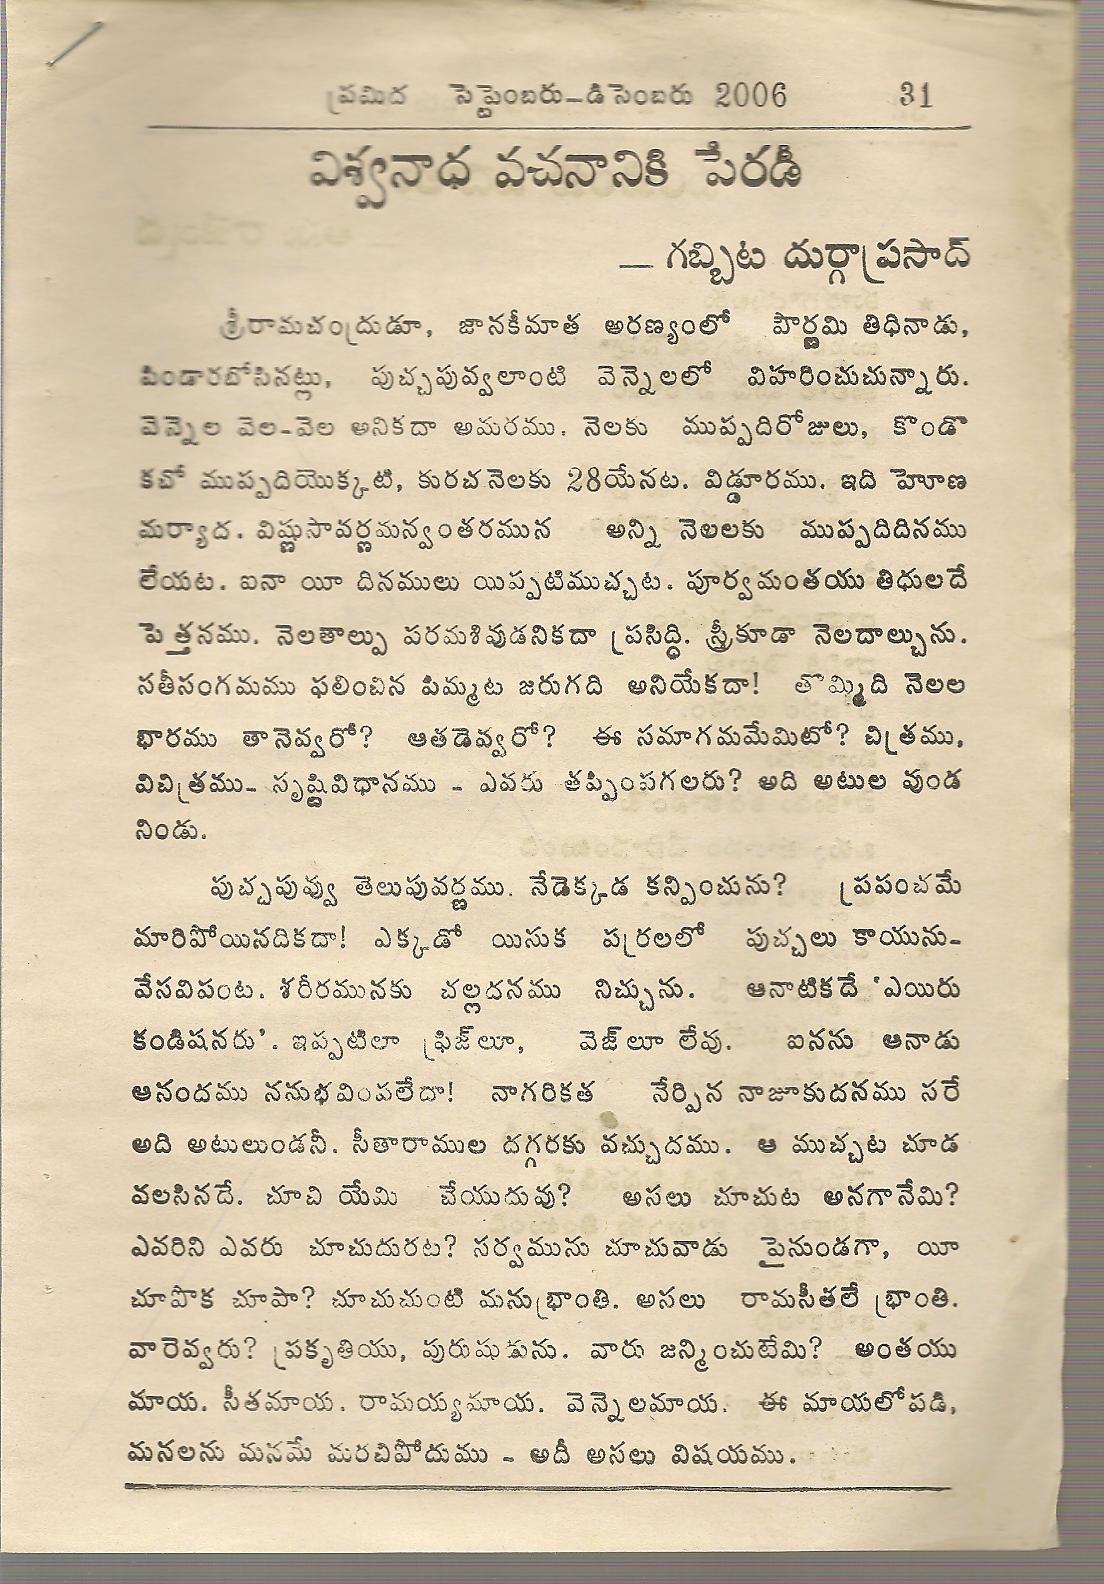 ప్రమిద సెప్టెంబరు-డిసెంబరు 2006 31
విశ్వనాధ వచనానికి పేరడీ
— గబ్బిట దుర్గాప్రసాద్
శ్రీరామచంద్రుడూ, జానకీమాత అరణ్యంలో పౌర్ణమి తిధినాడు,
పిండారబోసినట్లు, పుచ్చపువ్వలాంటి వెన్నెలలో విహరించుచున్నారు.
వెన్నెల వెల-వెల అనికదా అమరము. నెలకు ముప్పదిరోజులు, కొండొ
కచో ముప్పదియొక్కటి, కురచనెలకు 28యేనట. విడ్డూరము. ఇది హెూణ
మర్యాద. విష్ణుసావర్ణమన్వంతరమున అన్ని నెలలకు ముప్పదిదినము
లేయట. ఐనా యీ దినములు యిప్పటిముచ్చట. పూర్వమంతయు తిధులదే
పెత్తనము. నెలతాల్పు పరమశివుడనికదా ప్రసిద్ధి. స్త్రీకూడా నెలదాల్చును.
సతీసంగమము ఫలించిన పిమ్మట జరుగది అనియేకదా! తొమ్మిది నెలల
భారము తానెవ్వరో? ఆతడెవ్వరో? ఈ సమాగమమేమిటో? చిత్రము,
విచిత్రము- సృష్టివిధానము - ఎవరు తప్పింపగలరు? అది అటుల వుండ
నిండు.
పుచ్చపువ్వు తెలుపువర్ణము. నేడెక్కడ కన్పించును? ప్రపంచమే
మారిపోయినదికదా! ఎక్కడో యిసుక పర్రలలో పుచ్చలు కాయును-
వేసవిపంట. శరీరమునకు చల్లదనము నిచ్చును. ఆనాటికదే 'ఎయిరు
కండిషనరు'. ఇప్పటిలా ఫ్రిజ్‌లూ, వెజ్‌లూ లేవు. ఐనను ఆనాడు
ఆనందము ననుభవింపలేదా! నాగరికత నేర్పిన నాజూకుదనము సరే
అది అటులుండనీ. సీతారాముల దగ్గరకు వచ్చుదము. ఆ ముచ్చట చూడ
వలసినదే. చూచి యేమి చేయుదువు? అసలు చూచుట అనగానేమి?
ఎవరిని ఎవరు చూచుదురట? సర్వమును చూచువాడు పైనుండగా, యీ
చూపొక చూపా? చూచుచుంటి మనుభ్రాంతి. అసలు రామసీతలే భ్రాంతి.
వారెవ్వరు? ప్రకృతియు, పురుషుడును. వారు జన్మించుటేమి? అంతయు
మాయ. సీతమాయ. రామయ్యమాయ. వెన్నెలమాయ. ఈ మాయలోపడి,
మనలను మనమే మరచిపోదుము - అదీ అసలు విషయము.